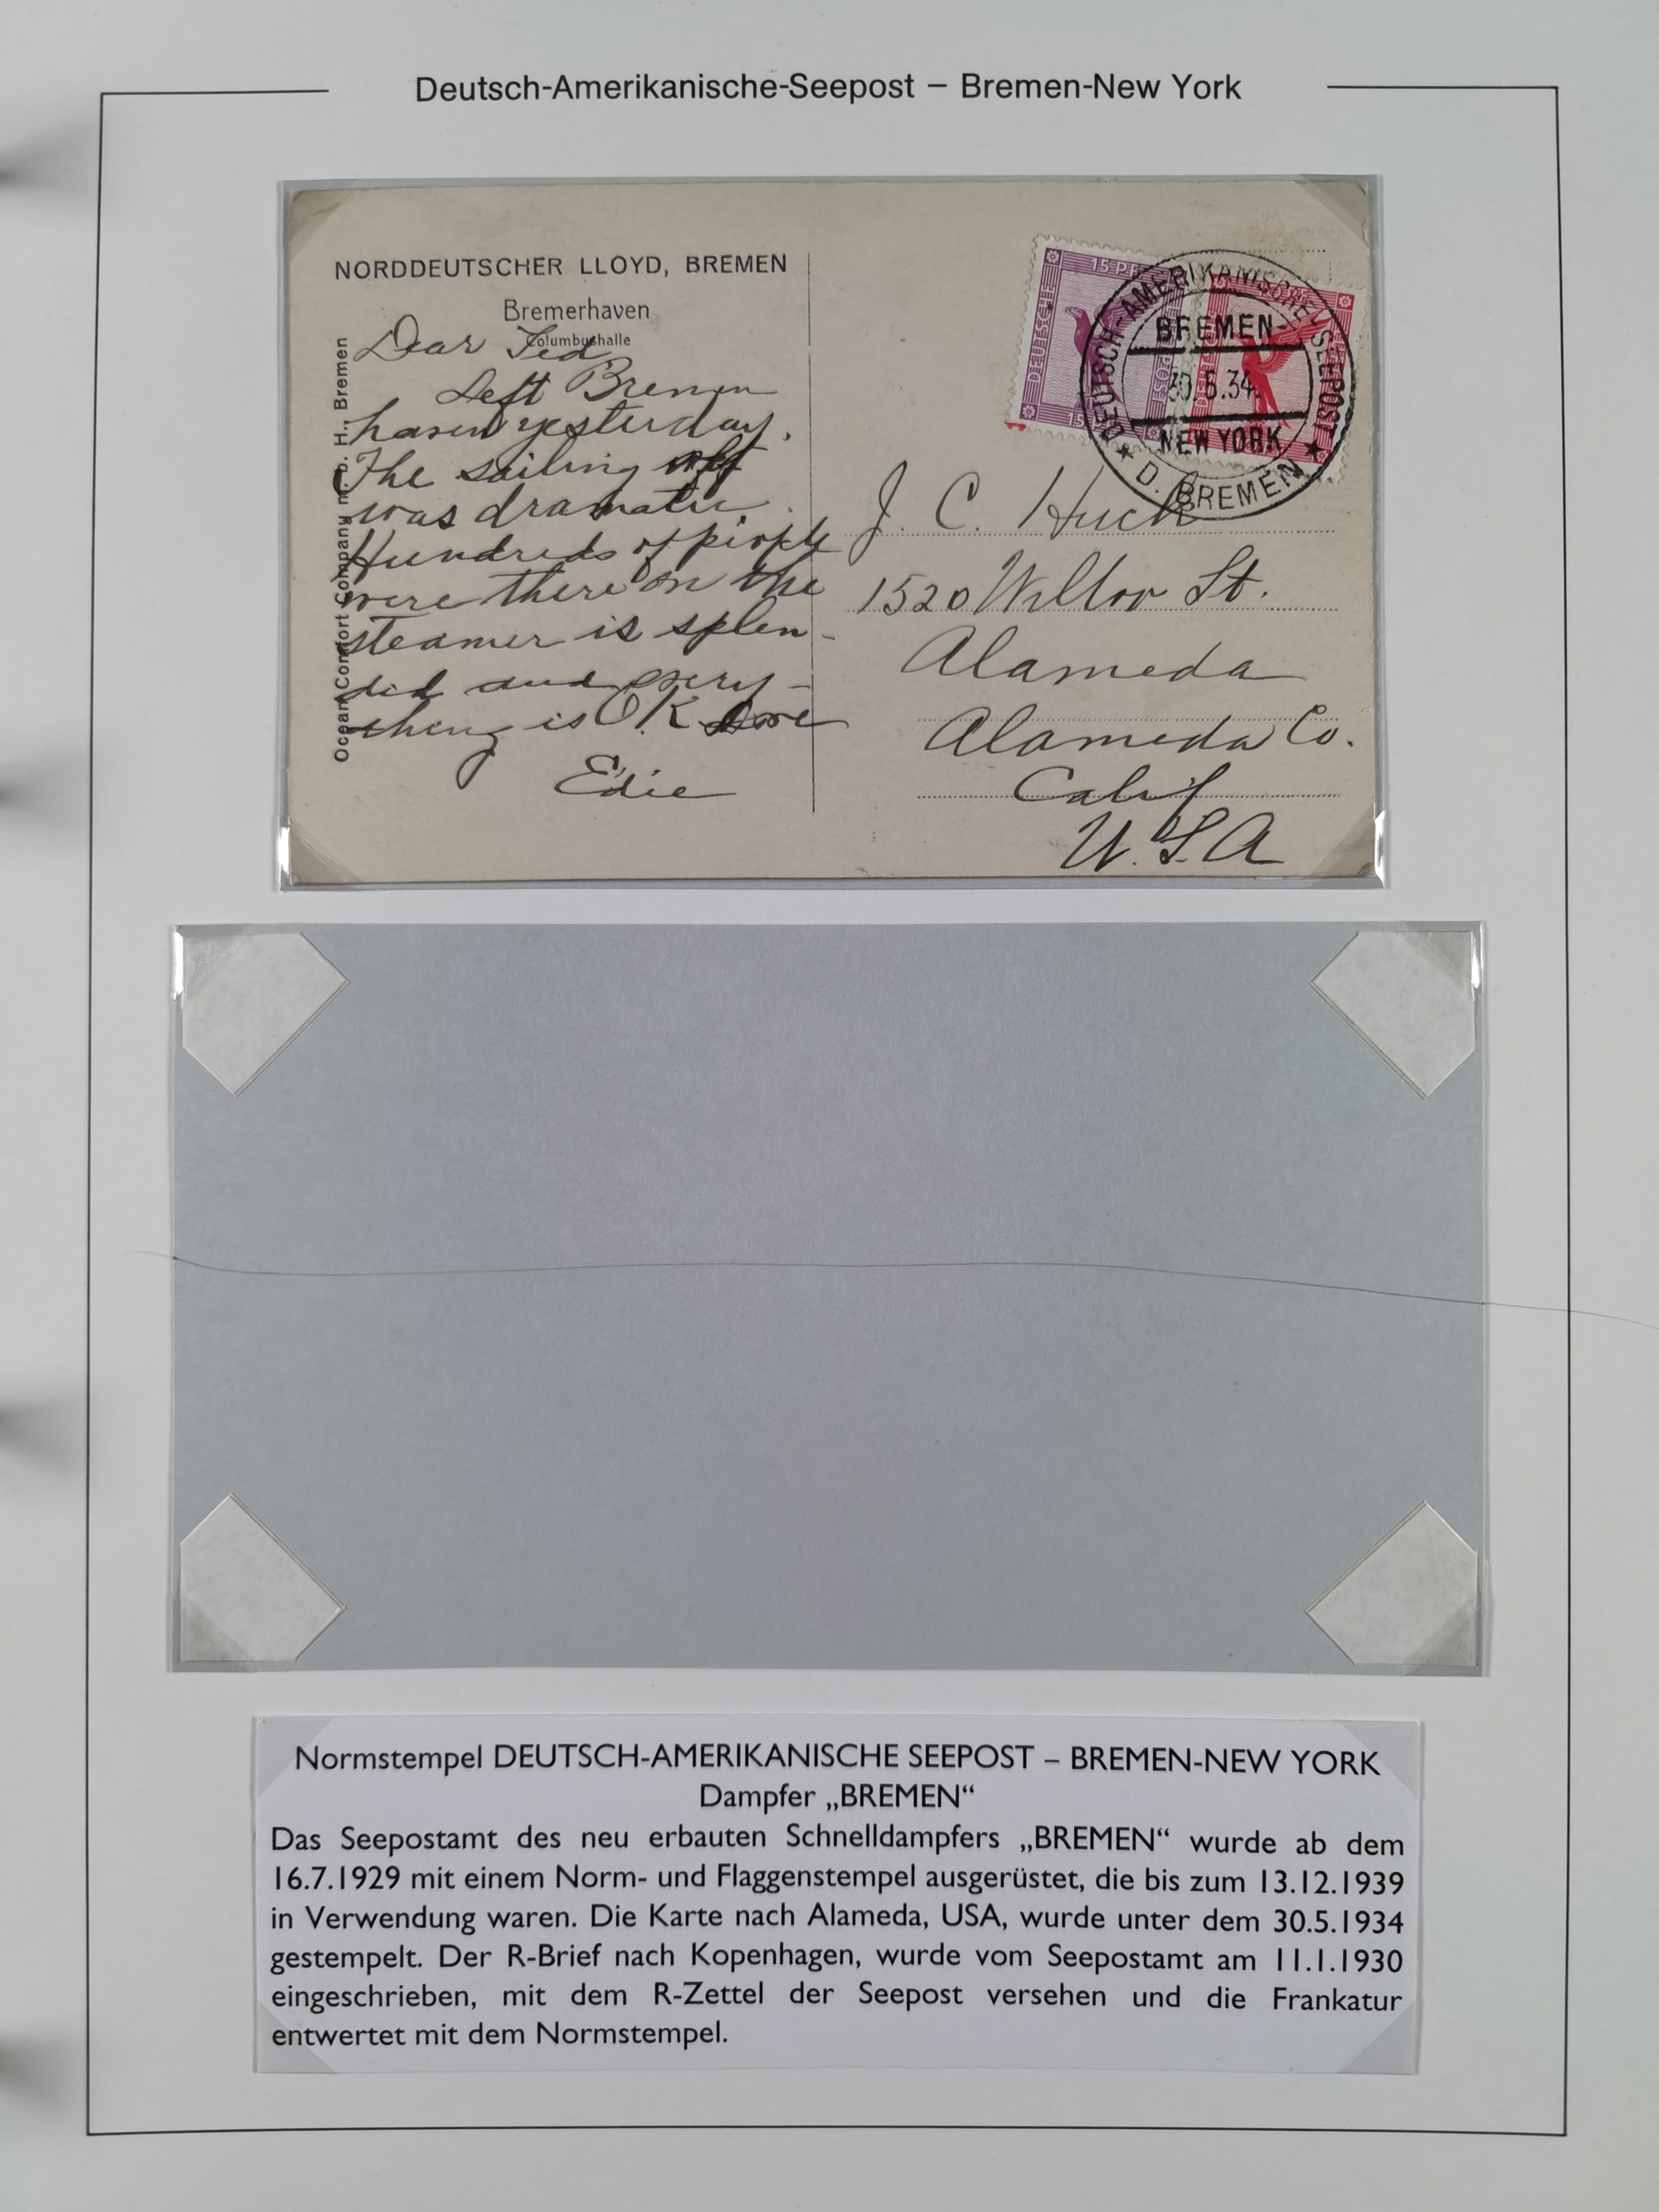 Deutsch-Amerikanische-Seepost – Bremen-New York
NORDDEUTSCHER LLOYD, BREMEN
Bremerhaven
Columbushalle
Ocean Comfort Company m. b. H., Bremen
Dear Ted
Left Bremen
haven yesterday.
The sailing
was dramatic.
Hundreds of people
were there on the
steamer is splen-
did and every-
thing is O.K. Love
Edie
15 PF
DEUTSCHE
DEUTSCH-AMERIKANISCHE SEEPOST
BREMEN-
30.5.34
NEW YORK
★ D. BREMEN ★
J. C. Huch
1520 St.
Alameda
Alameda Co.
Calif
U.S.A
Normstempel DEUTSCH-AMERIKANISCHE SEEPOST – BREMEN-NEW YORK
Dampfer „BREMEN“
Das Seepostamt des neu erbauten Schnelldampfers „BREMEN“ wurde ab dem
16.7.1929 mit einem Norm- und Flaggenstempel ausgerüstet, die bis zum 13.12.1939
in Verwendung waren. Die Karte nach Alameda, USA, wurde unter dem 30.5.1934
gestempelt. Der R-Brief nach Kopenhagen, wurde vom Seepostamt am 11.1.1930
eingeschrieben, mit dem R-Zettel der Seepost versehen und die Frankatur
entwertet mit dem Normstempel.